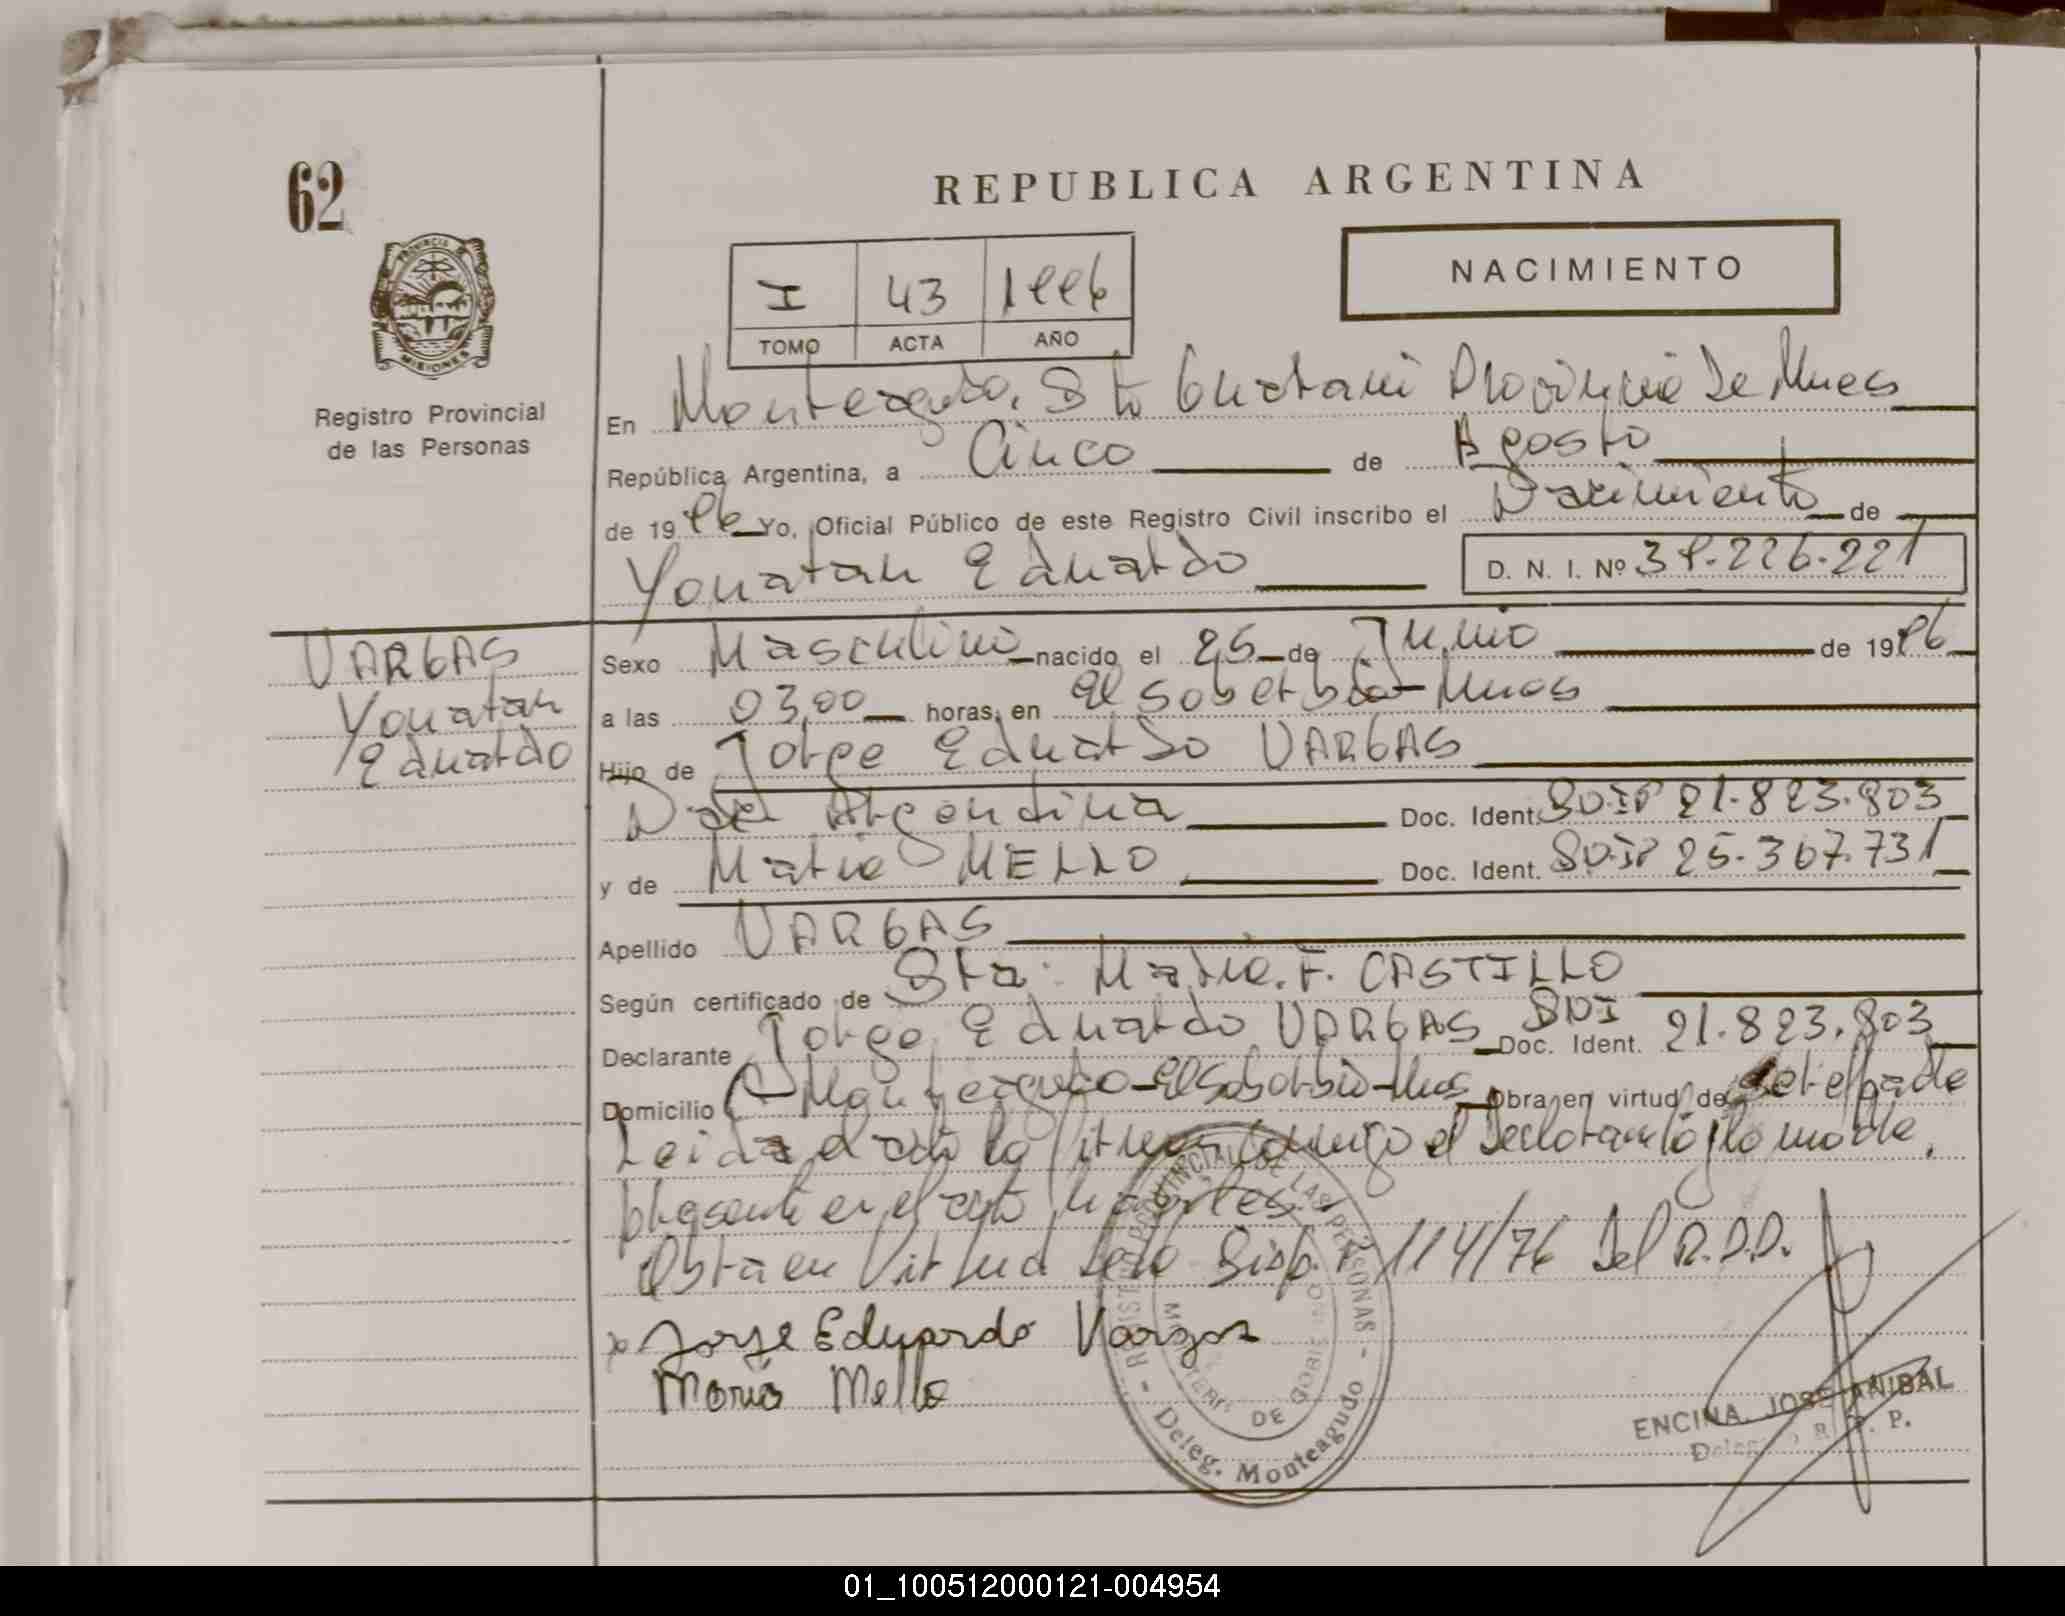 62
REPUBLICA ARGENTINA
NACIMIENTO
I 43 1996
TOMO ACTA AÑO
PROVINCIA DE
MISIONES
Registro Provincial
de las Personas
En Monteagudo, Dto Guarani Provincia De Mnes
República Argentina, a Cinco de Agosto
de 1996 Yo, Oficial Público de este Registro Civil inscribo el Nacimiento de
Yonatan Eduardo D. N. I. Nº 39.226.221
VARGAS
Yonatan
Eduardo
Sexo Masculino nacido el 25 de Junio de 1996
a las 03,00 horas, en El Soberbio - Mnes
Hijo de Jorge Eduardo VARGAS
Nac Argentina Doc. Ident. DNI Nº 21.823.803
y de Maria MELLO Doc. Ident. DNI Nº 25.367.731
Apellido VARGAS
Según certificado de Dra. Maria. F. CASTILLO
Declarante Jorge Eduardo VARGAS Doc. Ident. DNI 21.823.803
Domicilio Monteagudo - El Soberbio - Mnes Obra en virtud de ser el padre
Leida el acta la firman conmigo el declarante y la madre,
presente en el acto
Obra en Virtud de la Disp. Nº 114/76 Del R.P.P.
Jorge Eduardo Vargas
Maria Mello
REGISTRO PROVINCIAL DE LAS PERSONAS
DE
- Deleg. Monteagudo -
ENCINA, JOSE ANIBAL
R. P. P.
01_100512000121-004954